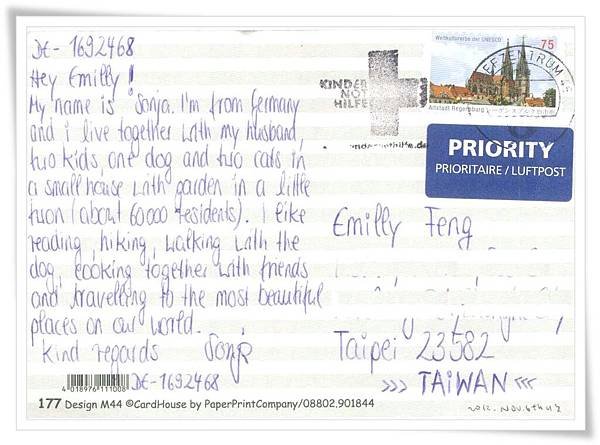 DE-1692468
Hey Emilly!
My name is Sonja. I'm from Germany
and i live together with my husband,
two kids, one dog and two cats in
a small house with garden in a little
town (about 60000 residents). I like
reading, hiking, walking with the
dog, cooking together with friends
and travelling to the most beautiful
places on our world.
kind regards Sonja
DE-1692468
4 018976 111008
177 Design M44 ©CardHouse by PaperPrintCompany/08802.901844
KINDER
NOT
HILFE
Weltkulturerbe der UNESCO
75
Altstadt Regensburg
EFZENTRUM
PRIORITY
PRIORITAIRE / LUFTPOST
Emilly Feng
Taipei 23582
>>> TAiWAN <<<
2012. NOV. 6th